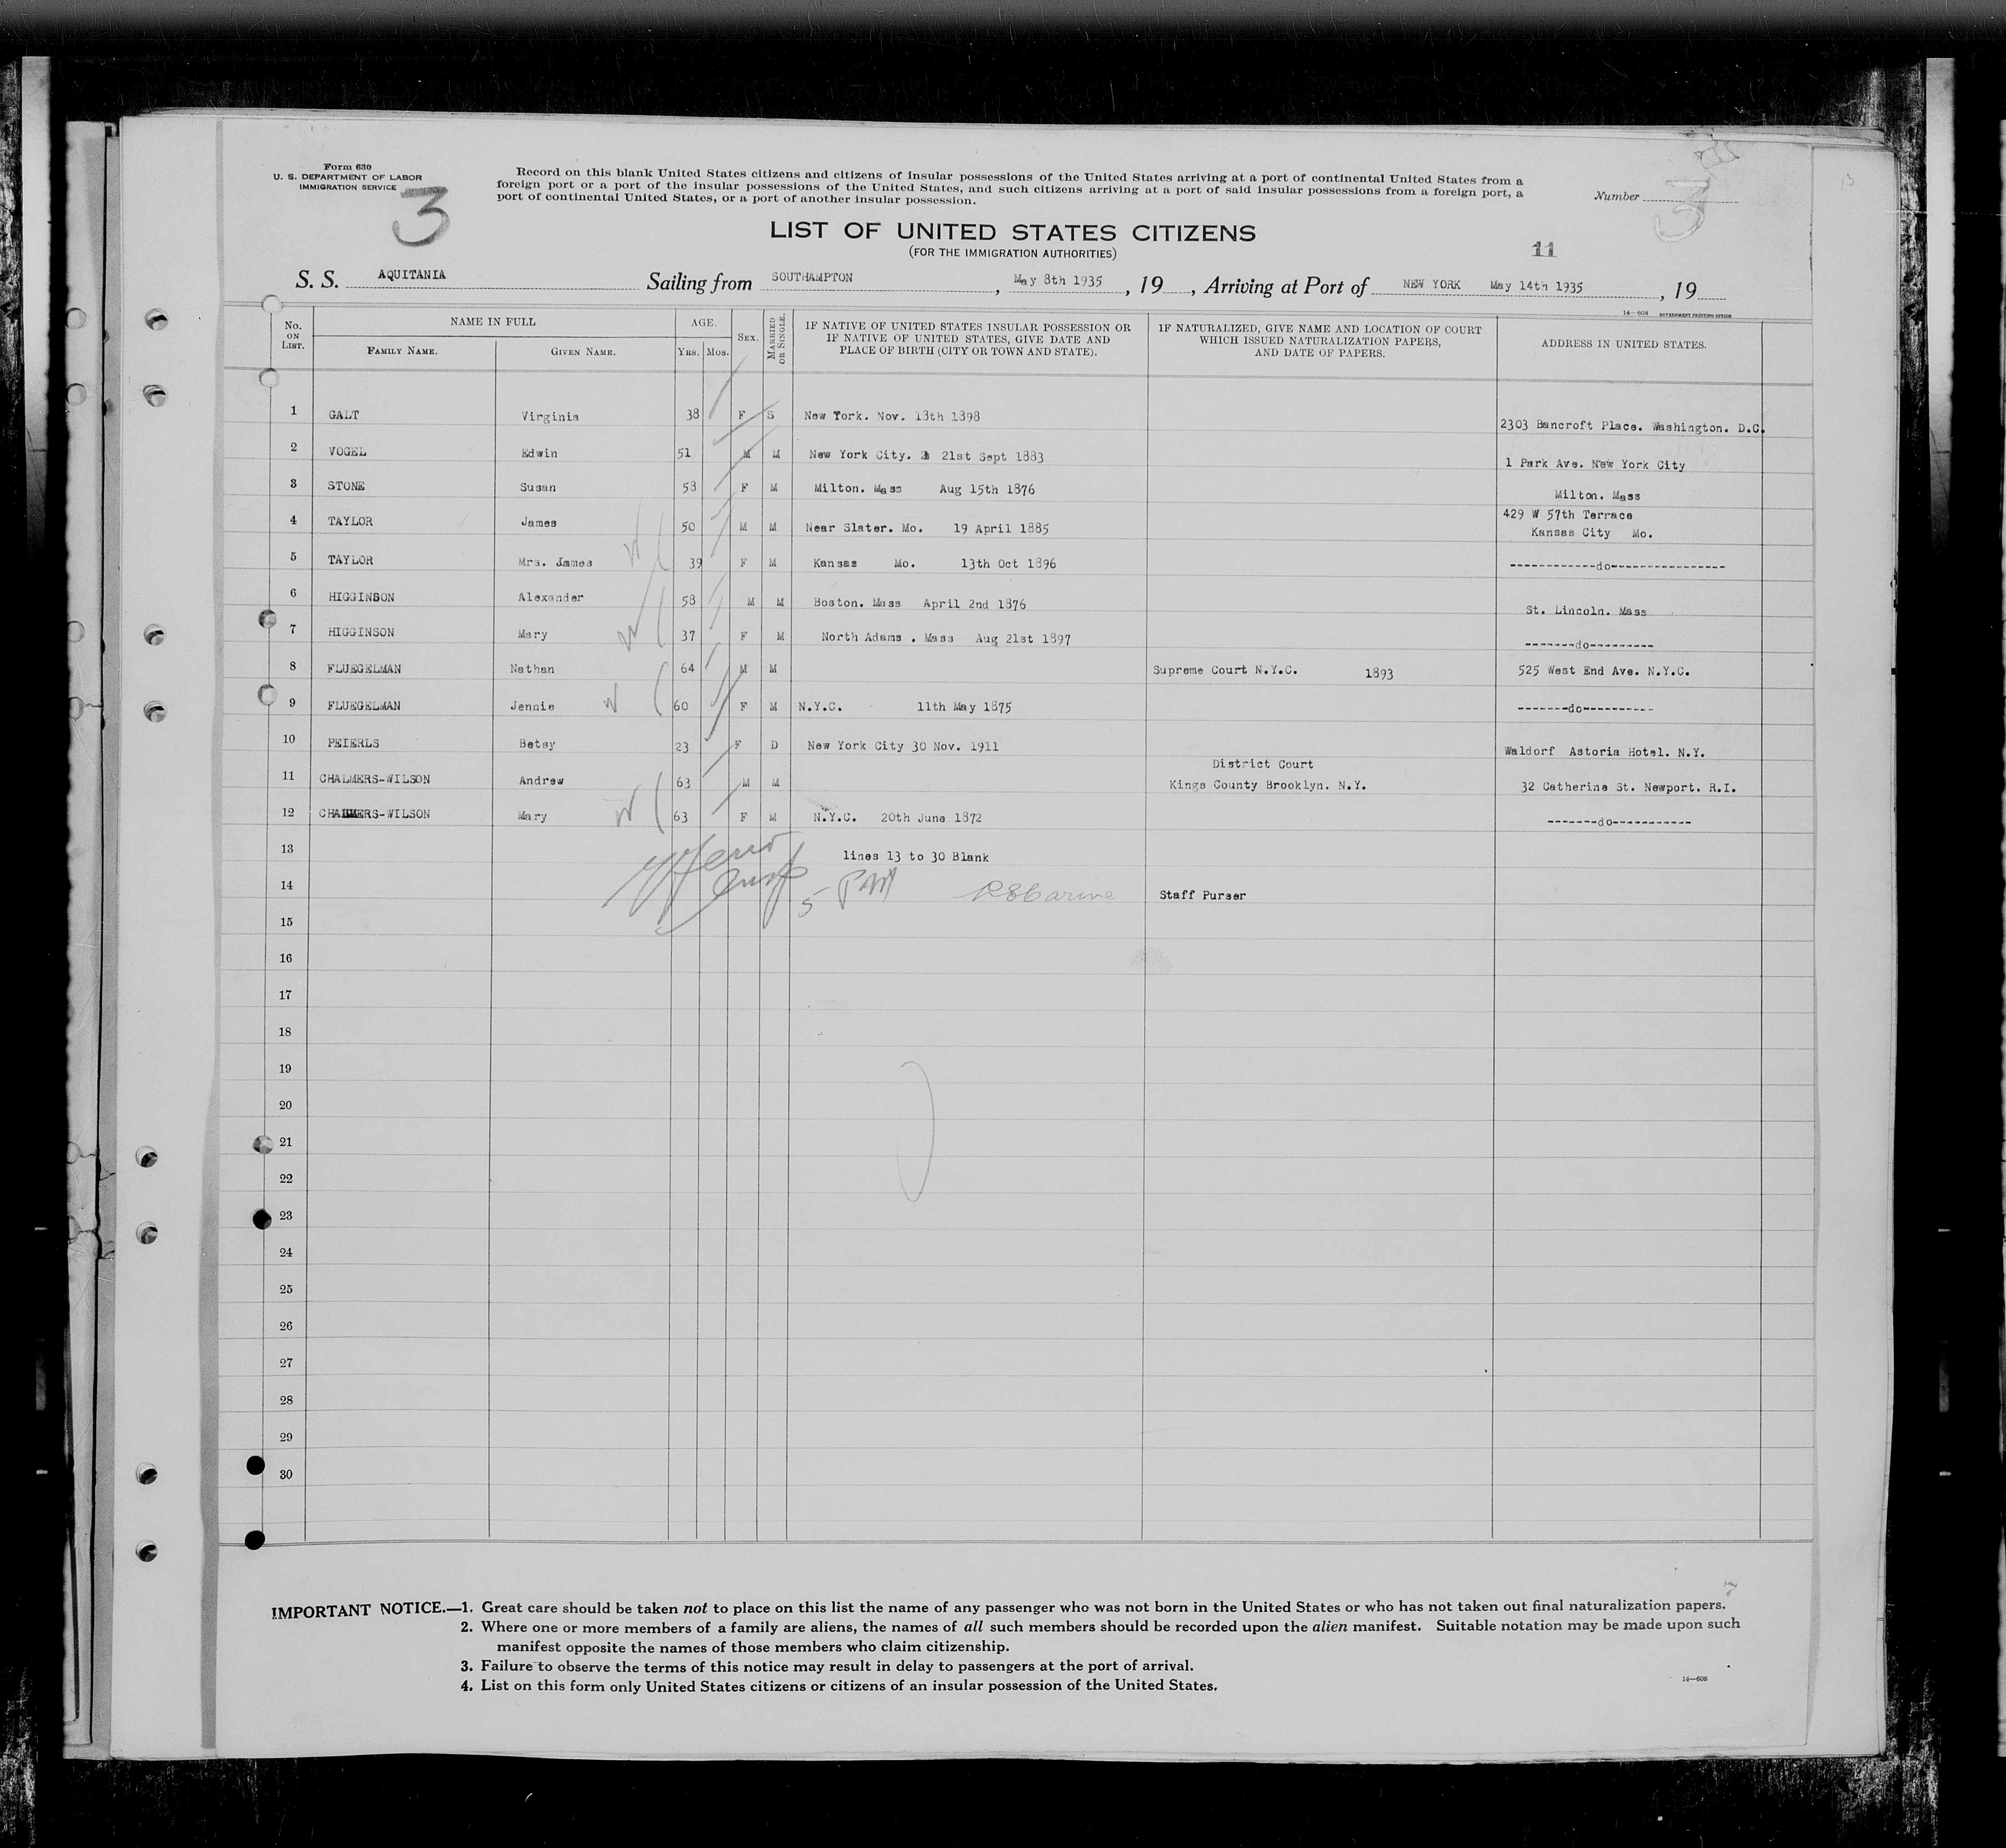 Form 630
U. S. DEPARTMENT OF LABOR
IMMIGRATION SERVICE
3
Record on this blank United States citizens and citizens of insular possessions of the United States arriving at a port of continental United States from a
foreign port or a port of the insular possessions of the United States, and such citizens arriving at a port of said insular possessions from a foreign port, a
port of continental United States, or a port of another insular possession.
Number
3
LIST OF UNITED STATES CITIZENS
(FOR THE IMMIGRATION AUTHORITIES)
11
S. S. AQUITANIA Sailing from SOUTHAMPTON, May 8th 1935, 19 , Arriving at Port of NEW YORK May 14th 1935, 19
14—608 GOVERNMENT PRINTING OFFICE
No. ON LIST. NAME IN FULL AGE. SEX. MARRIED OR SINGLE. IF NATIVE OF UNITED STATES INSULAR POSSESSION OR IF NATIVE OF UNITED STATES, GIVE DATE AND PLACE OF BIRTH (CITY OR TOWN AND STATE). IF NATURALIZED, GIVE NAME AND LOCATION OF COURT WHICH ISSUED NATURALIZATION PAPERS, AND DATE OF PAPERS. ADDRESS IN UNITED STATES.
FAMILY NAME. GIVEN NAME. YRS. MOS.
1 GALT Virginia 38 F S New York. Nov. 18th 1898 2303 Bancroft Place. Washington. D.C.
2 VOGEL Edwin 51 M M New York City. 21st Sept 1883 1 Park Ave. New York City
3 STONE Susan 58 F M Milton. Mass Aug 15th 1876 Milton. Mass
4 TAYLOR James 50 M M Near Slater. Mo. 19 April 1885 429 W 57th Terrace
Kansas City Mo.
5 TAYLOR Mrs. James 39 F M Kansas Mo. 13th Oct 1896 ------------do----------------
6 HIGGINSON Alexander 58 M M Boston. Mass April 2nd 1876 St. Lincoln. Mass
7 HIGGINSON Mary 37 F M North Adams . Mass Aug 21st 1897 -------do---------
8 FLUEGELMAN Nathan 64 M M Supreme Court N.Y.C. 1893 525 West End Ave. N.Y.C.
9 FLUEGELMAN Jennie 60 F M N.Y.C. 11th May 1875 -------do----------
10 PEIERLS Betsy 23 F D New York City 30 Nov. 1911 Waldorf Astoria Hotel. N.Y.
District Court
11 CHALMERS-WILSON Andrew 63 M M Kings County Brooklyn. N.Y. 32 Catherine St. Newport. R.I.
12 CHALMERS-WILSON Mary 63 F M N.Y.C. 20th June 1872 -------do-----------
13 lines 13 to 30 Blank
14 Staff Purser
15
16
17
18
19
20
21
22
23
24
25
26
27
28
29
30
7
IMPORTANT NOTICE.—1. Great care should be taken not to place on this list the name of any passenger who was not born in the United States or who has not taken out final naturalization papers.
2. Where one or more members of a family are aliens, the names of all such members should be recorded upon the alien manifest. Suitable notation may be made upon such
manifest opposite the names of those members who claim citizenship.
3. Failure to observe the terms of this notice may result in delay to passengers at the port of arrival.
4. List on this form only United States citizens or citizens of an insular possession of the United States.
14—608